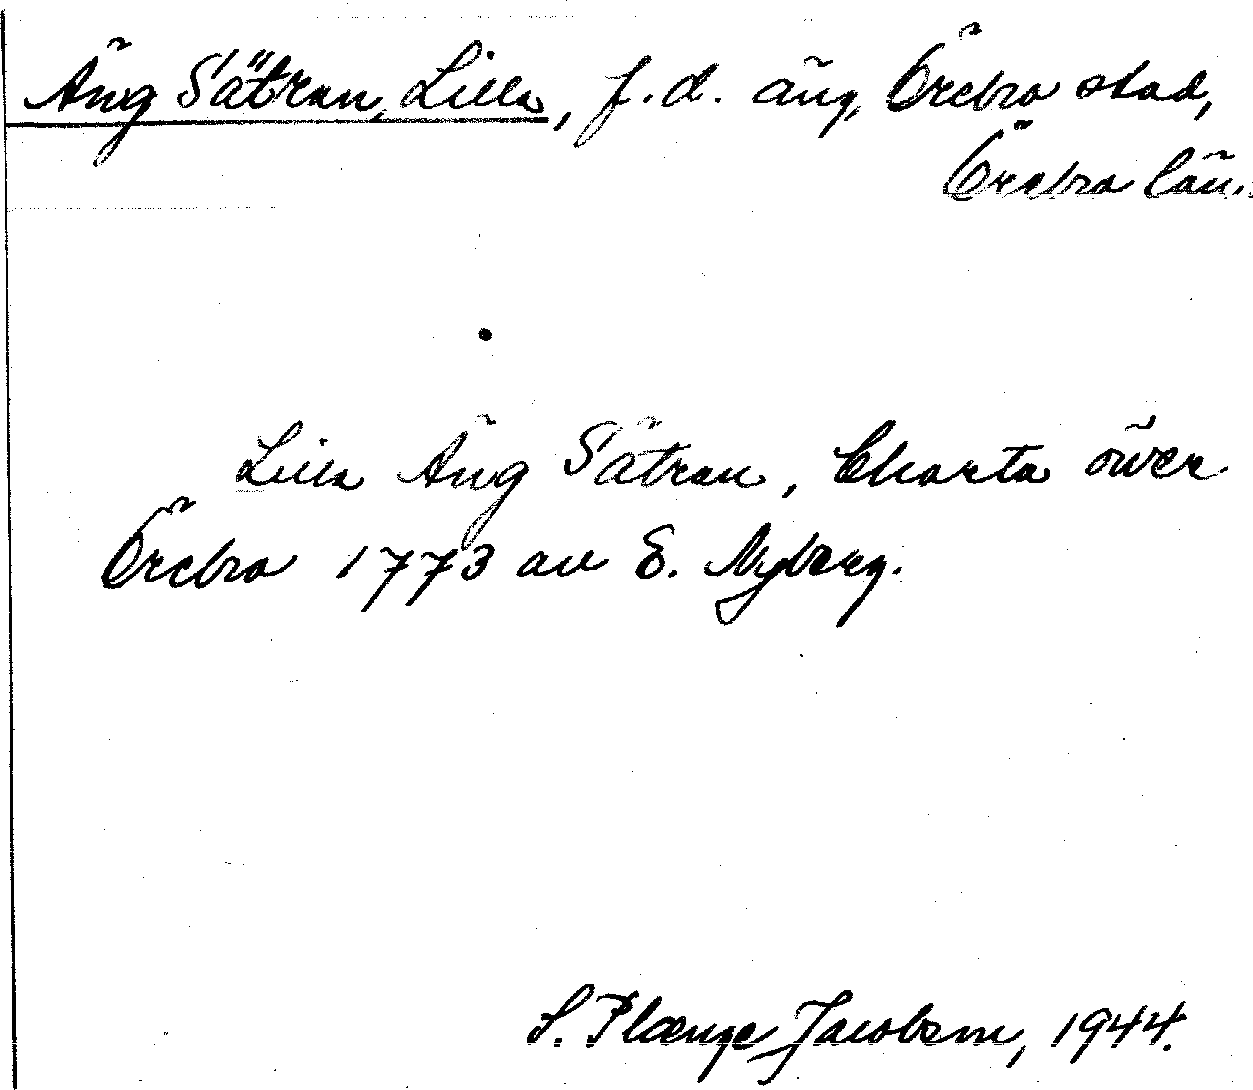 Äng Sätran, Lilla, f.d. äng, Örebro stad,
Örebro län.
Lilla Äng Sätran, Charta öwer
Örebro 1773 av E. Nyberg.
S. Plænge Jacobson, 1944.